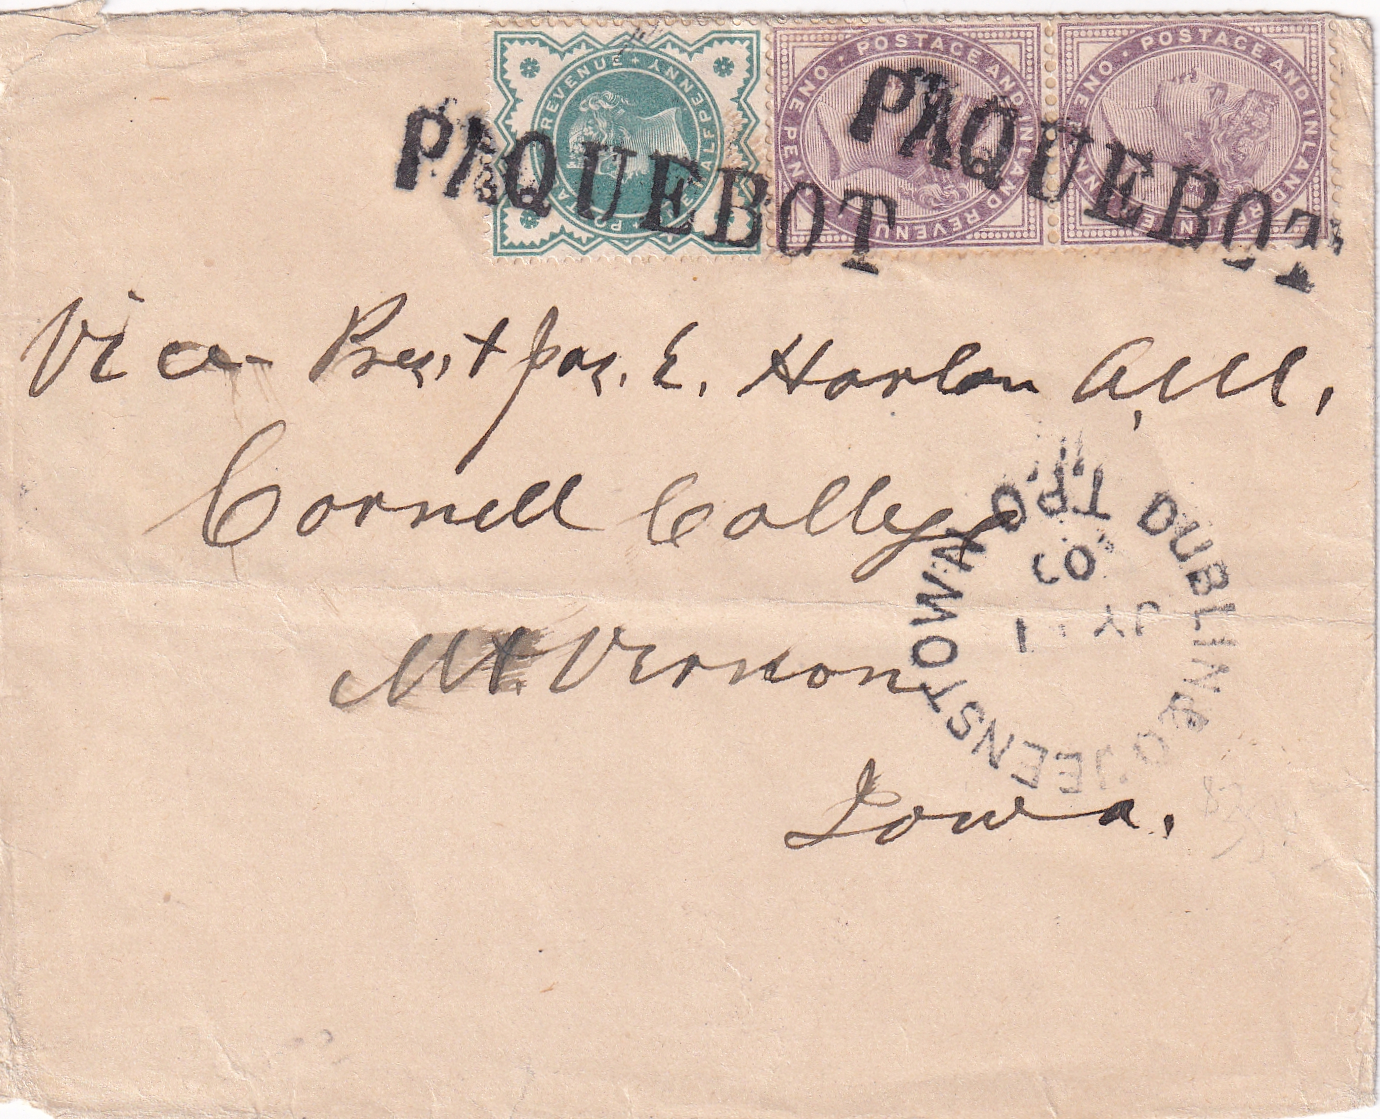 POSTAGE & REVENUE HALFPENNY
POSTAGE AND INLAND REVENUE ONE PENNY
POSTAGE AND INLAND REVENUE ONE PENNY
PAQUEBOT
PAQUEBOT
Vice-Prest Jas. E. Harlan A.M.,
Cornell College
Mt. Vernon
Iowa.
DUBLIN & QUEENSTOWN
T.P.O
JY 1
00